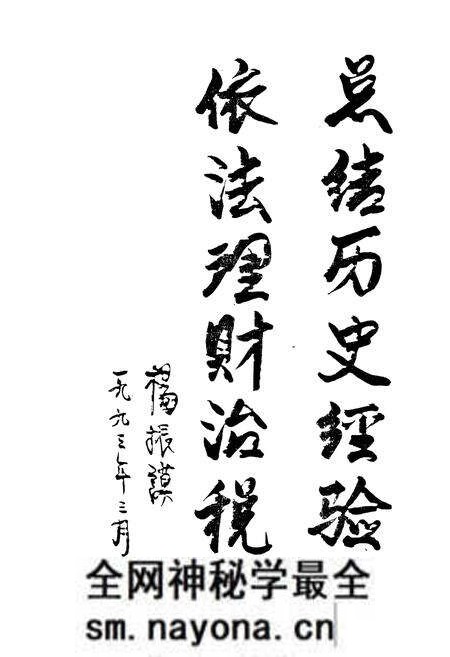 总结历史经验
依法理财治税
楊振漢
一九九三年三月
全网神秘学最全
sm.nayona.cn